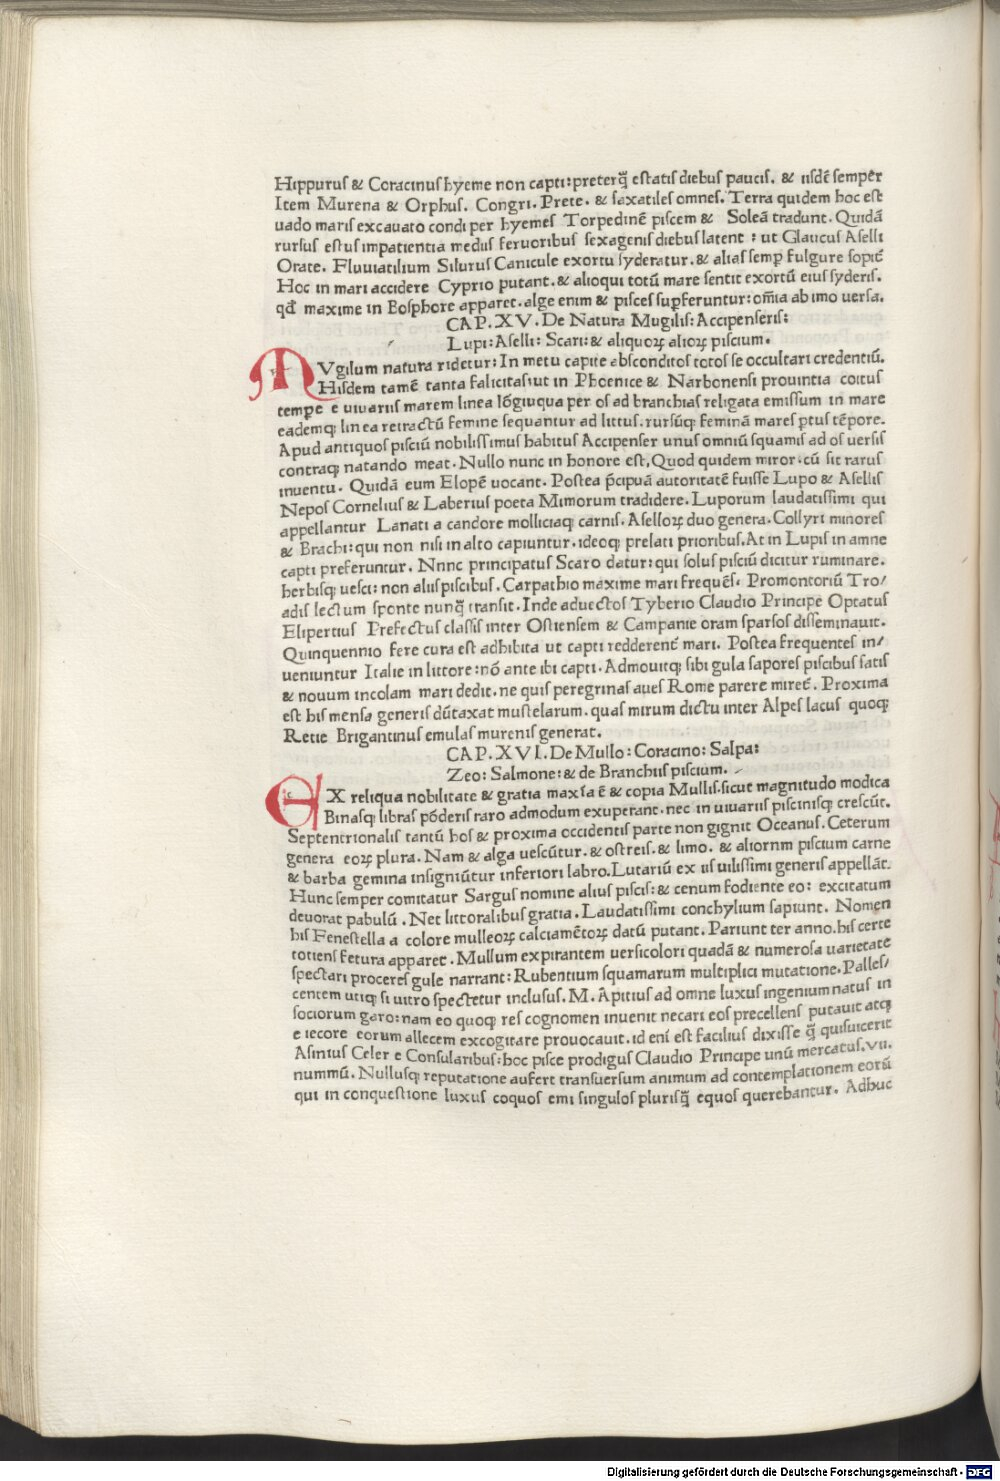 Hippurus & Coracinus hyeme non capti: preterq̃ estatis diebus paucis. & iisdẽ semper
Item Murena & Orphus. Congri. Prete. & saxatiles omnes. Terra quidem hoc est
uado maris excauato condi per hyemes Torpedinẽ piscem & Soleã tradunt. Quidã
rursus estus impatientia mediis feruoribus sexagenis diebus latent : ut Glaucus Aselli
Orate. Fluuiatilium Silurus Canicule exortu syderatur. & alias semp̱ fulgure sopit̃
Hoc in mari accidere Cyprio putant. & alioqui totũ mare sentit exortũ eius syderis.
qđ maxime in Bosphore apparet. alge enim & pisces sup̱feruntur: om̃ia ab imo uersa.
CAP. XV. De Natura Mugilis: Accipenseris:
Lupi: Aselli: Scari: & aliquoꝝ alioꝝ piscium.
MVgilum natura ridetur: In metu capite absconditos totos se occultari credentiũ.
Hisdem tamẽ tanta salicitas: ut in Phoenice & Narbonensi prouintia coitus
temp̱e e uiuariis marem linea lõgiuqua per os ad branchias religata emissum in mare
eademq; linea retractũ femine sequantur ad littus. rursũq; feminã mares p̱tus tẽpore.
Apud antiquos pisciũ nobilissimus habitus Accipenser unus omniũ squamis ad os uersis
contraq; natando meat. Nullo nunc in honore est, Quod quidem miror. cũ sit rarus
inuentu. Quidã eum Elopẽ uocant. Postea p̃cipuã autoritatẽ fuisse Lupo & Asellis
Nepos Cornelius & Laberius poeta Mimorum tradidere. Luporum laudatissimi qui
appellantur Lanati a candore molliciaq; carnis. Aselloꝝ duo genera. Collyri minores
& Brachi: qui non nisi in alto capiuntur. ideoq; prelati prioribus. At in Lupis in amne
capti preferuntur. Nnnc principatus Scaro datur: qui solus pisciũ dicitur ruminare.
herbisq; uesci: non aliis piscibus. Carpathio maxime mari frequẽs. Promontoriũ Tro/
adis lectum sponte nunq̃ transit. Inde aduectos Tyberio Claudio Principe Optatus
Elipertius Prefectus classis inter Ostiensem & Campanie oram sparsos disseminauit.
Quinquennio fere cura est adhibita ut capti redderent̃ mari. Postea frequentes in/
ueniuntur Italie in littore: nõ ante ibi capti. Admouitq; sibi gula sapores piscibus satis
& nouum incolam mari dedit. ne quis peregrinas aues Rome parere miret̃. Proxima
est his mensa generis dũtaxat mustelarum. quas mirum dictu inter Alpes lacus quoq;
Retie Brigantinus emulas murenis generat.
CAP. XVI. De Mullo: Coracino: Salpa:
Zeo: Salmone: & de Branchiis piscium.
EX reliqua nobilitate & gratia maxĩa ẽ & copia Mullis. sicut magnitudo modica
Binasq; libras põderis raro admodum exuperant. nec in uiuariis piscinisq; crescũt.
Septentrionalis tantũ hos & proxima occidentis parte non gignit Oceanus. Ceterum
genera eoꝝ plura. Nam & alga uescũtur. & ostreis. & limo. & aliornm piscium carne
& barba gemina insigniũtur inferiori labro. Lutariũ ex iis uilissimi generis appellãt.
Hunc semper comitatur Sargus nomine alius piscis: & cenum fodiente eo: excitatum
deuorat pabulũ. Net littoralibus gratia. Laudatissimi conchylium sapiunt. Nomen
his Fenestella a colore mulleoꝝ calciamẽtoꝝ datũ putant. Pariunt ter anno. his certe
totiens fetura apparet. Mullum expirantem uersicolori quadã & numerosa uarietate
spectari proceres gule narrant: Rubentium squamarum multiplici mutatione. Palles/
centem utiq; si uitro spectetur inclusus. M. Apitius ad omne luxus ingenium natus in
sociorum garo: nam eo quoq; res cognomen inuenit necari eos precellens putauit atq;
e iecore eorum allecem excogitare prouocauit. id eni est facilius dixisse q̃ quisuicerit
Asinius Celer e Consularibus: hoc pisce prodigus Claudio Principe unũ mercatus. vii.
nummũ. Nullusq; reputatione aufert transuersum animum ad contemplationem eorũ
qui in conquestione luxus coquos emi singulos plurisq̃ equos querebantur. Adhuc
Digitalisierung gefördert durch die Deutsche Forschungsgemeinschaft - DFG